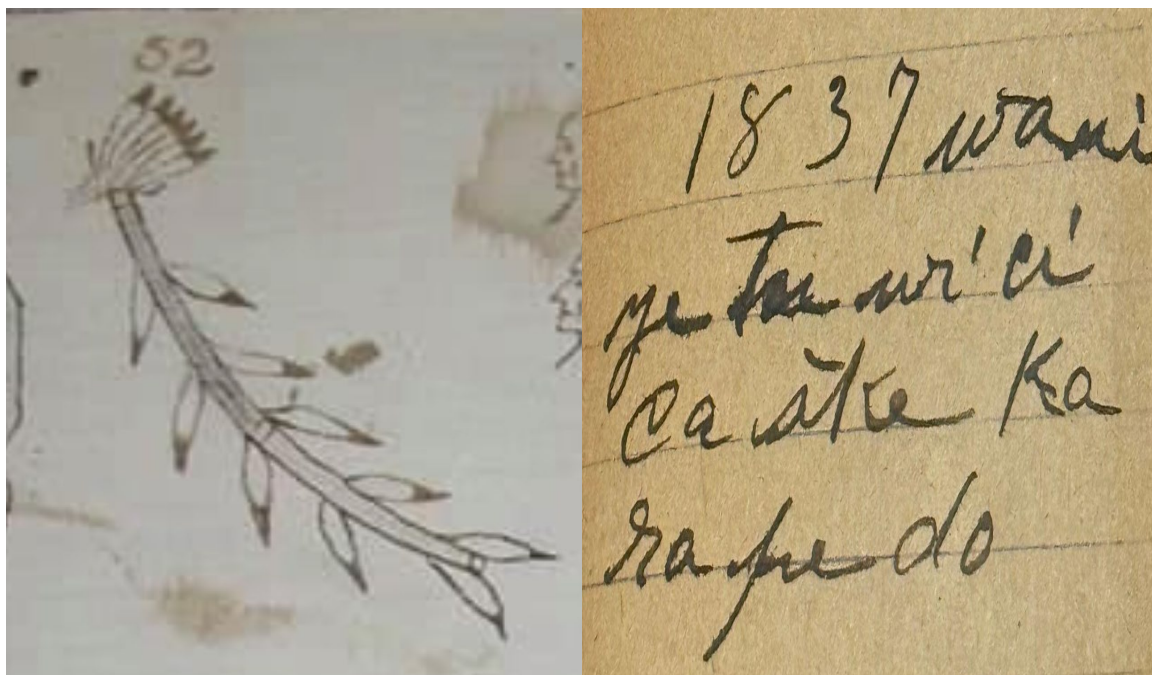 52
1837 wani
ye tu wi ci
ca ške Ka
ra pe do